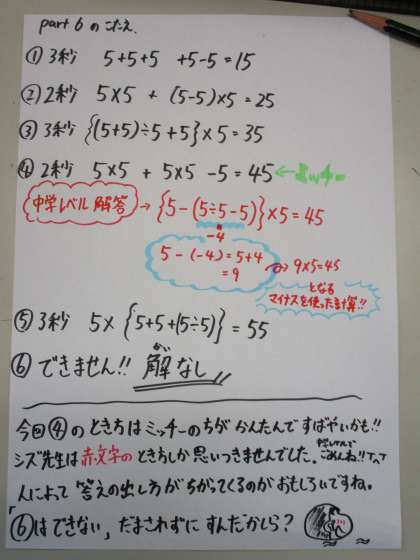 part 6 のこたえ
① 3秒 5+5+5 +5-5=15
② 2秒 5×5 + (5-5)×5=25
③ 3秒 {(5+5)÷5+5}×5=35
④ 2秒 5×5 + 5×5 -5=45 ←ミッチー
中学レベル解答 → {5-(5÷5-5)}×5=45
-4
5-(-4)=5+4
=9 → 9×5=45
となる
マイナスを使った計算!!
⑤ 3秒 5×{5+5+(5÷5)}=55
⑥ できません!! 解なし
かい
今回④のとき方はミッチーのちがかんたんですばやいかも!!
シズ先生は赤文字のときしか思いつきませんでした。ごめんね!!
人によって答えの出し方がちがってくるのがおもしろいですね。
「⑥はできない」だまされずにすんだかしら?